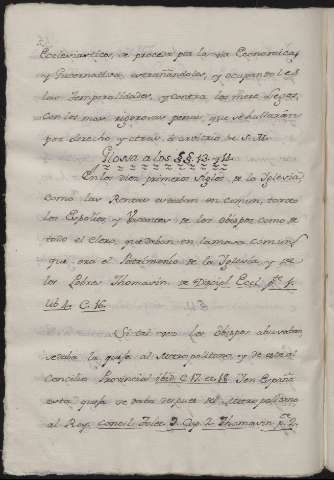 Eclesiasticos, se procesa por la via Economica, y
y Gubernativa, extrañandolos, y ocupandoles
las Temporalidades, y contra los mere Legos,
con las mas rigorosas penas, que se hallaràn
por derecho y otras à arvitrio de S. M.
Glossa a los §§. 13. y 14.
En los diez primeros siglos de la Iglesia
como las Rentas estaban en comun, tanto
los Espolios y Vacantes de los Obispos como de
todo el Clero, quedaban en la masa comun,
que era el Patrimonio de la Iglesia, y de
los Pobres Thomasin. de Discipl. Eccl. p.e
lib. 4. C. 16.
Si tal vez los Obispos abusaban,
se daba la queja al Metropolitano, y de este al
Concilio Provincial ibid. C. 17. et 18. I en España
esta queja se daba despues del Metropolitano
al Rey. Concil. Tolet. 9. Cap. 1. Thomasin p.e 2.